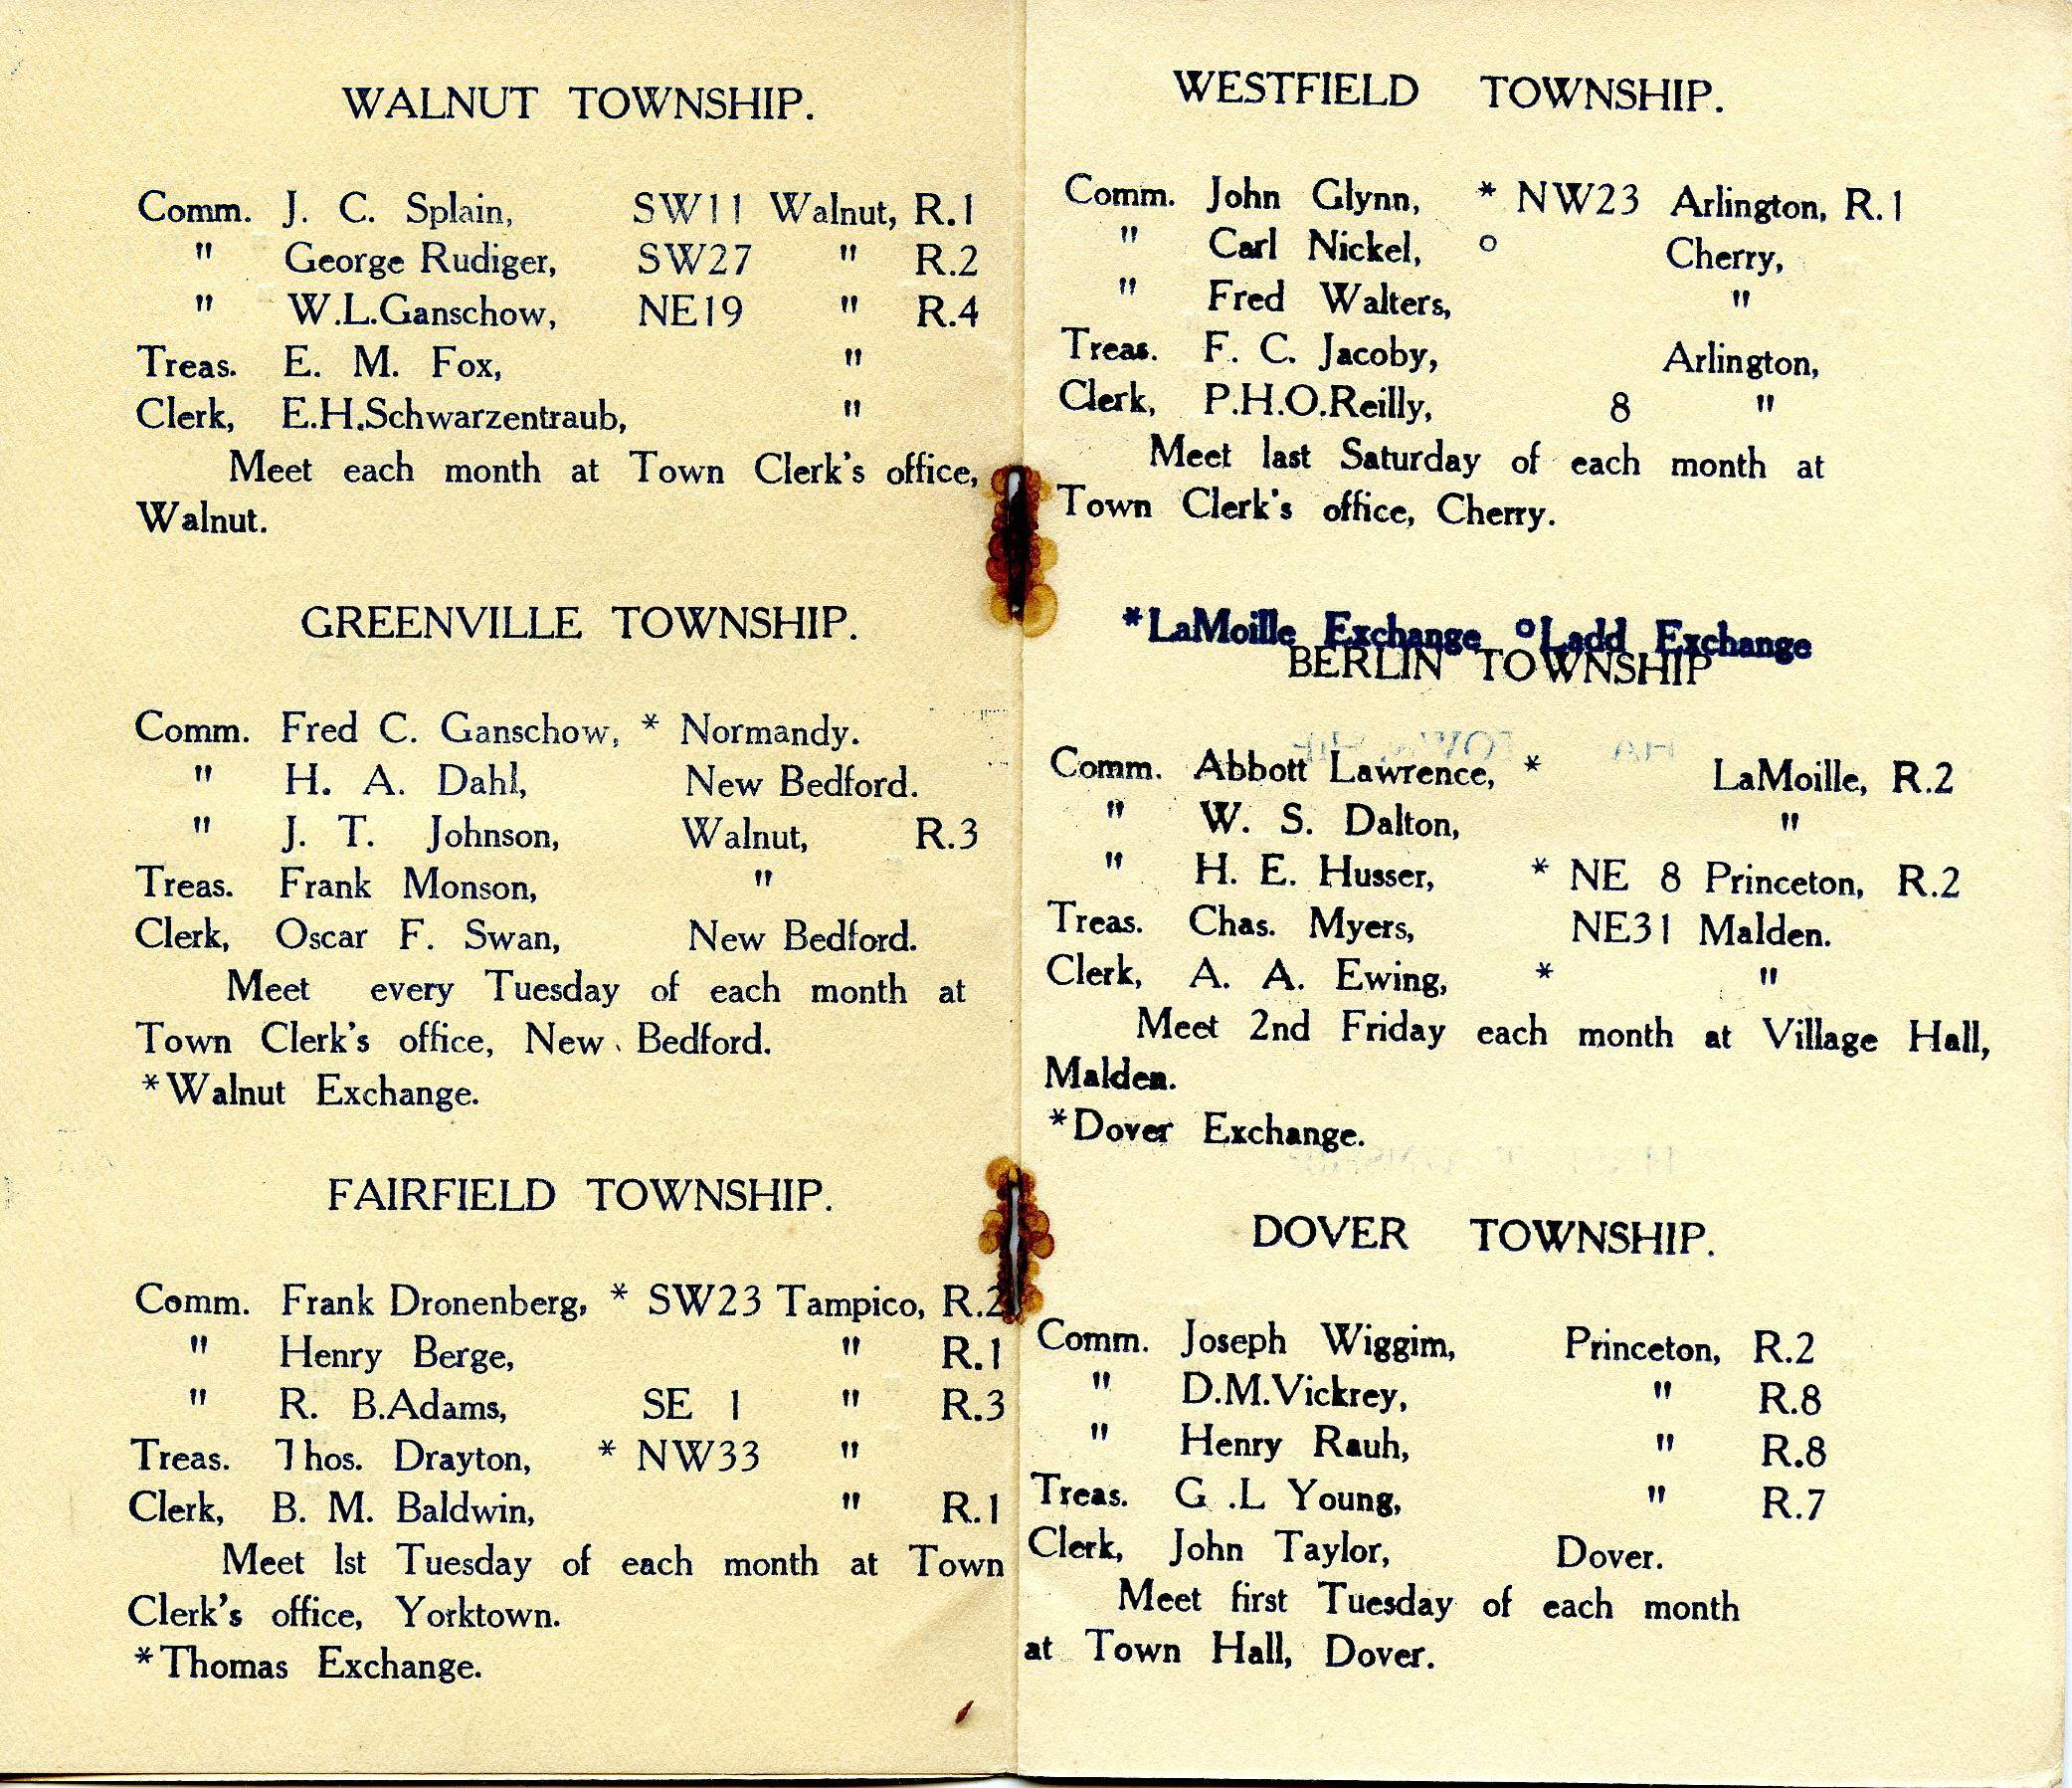 WALNUT TOWNSHIP.
Comm. J. C. Splain, SW11 Walnut, R.1
" George Rudiger, SW27 " R.2
" W.L.Ganschow, NE19 " R.4
Treas. E. M. Fox, "
Clerk, E.H.Schwarzentraub, "
Meet each month at Town Clerk's office,
Walnut.
GREENVILLE TOWNSHIP.
Comm. Fred C. Ganschow, * Normandy.
" H. A. Dahl, New Bedford.
" J. T. Johnson, Walnut, R.3
Treas. Frank Monson, "
Clerk, Oscar F. Swan, New Bedford.
Meet every Tuesday of each month at
Town Clerk's office, New Bedford.
*Walnut Exchange.
FAIRFIELD TOWNSHIP.
Comm. Frank Dronenberg, * SW23 Tampico, R.2
" Henry Berge, " R.1
" R. B.Adams, SE 1 " R.3
Treas. Thos. Drayton, * NW33 "
Clerk, B. M. Baldwin, " R.1
Meet 1st Tuesday of each month at Town
Clerk's office, Yorktown.
*Thomas Exchange.
WESTFIELD TOWNSHIP.
Comm. John Glynn, * NW23 Arlington, R.1
" Carl Nickel, o Cherry,
" Fred Walters, "
Treas. F. C. Jacoby, Arlington,
Clerk, P.H.O.Reilly, 8 "
Meet last Saturday of each month at
Town Clerk's office, Cherry.
*LaMoille Exchange oLadd Exchange
BERLIN TOWNSHIP
Comm. Abbott Lawrence, * LaMoille, R.2
" W. S. Dalton, "
" H. E. Husser, * NE 8 Princeton, R.2
Treas. Chas. Myers, NE31 Malden.
Clerk, A. A. Ewing, * "
Meet 2nd Friday each month at Village Hall,
Malden.
*Dover Exchange.
DOVER TOWNSHIP.
Comm. Joseph Wiggim, Princeton, R.2
" D.M.Vickrey, " R.8
" Henry Rauh, " R.8
Treas. G .L Young, " R.7
Clerk, John Taylor, Dover.
Meet first Tuesday of each month
at Town Hall, Dover.